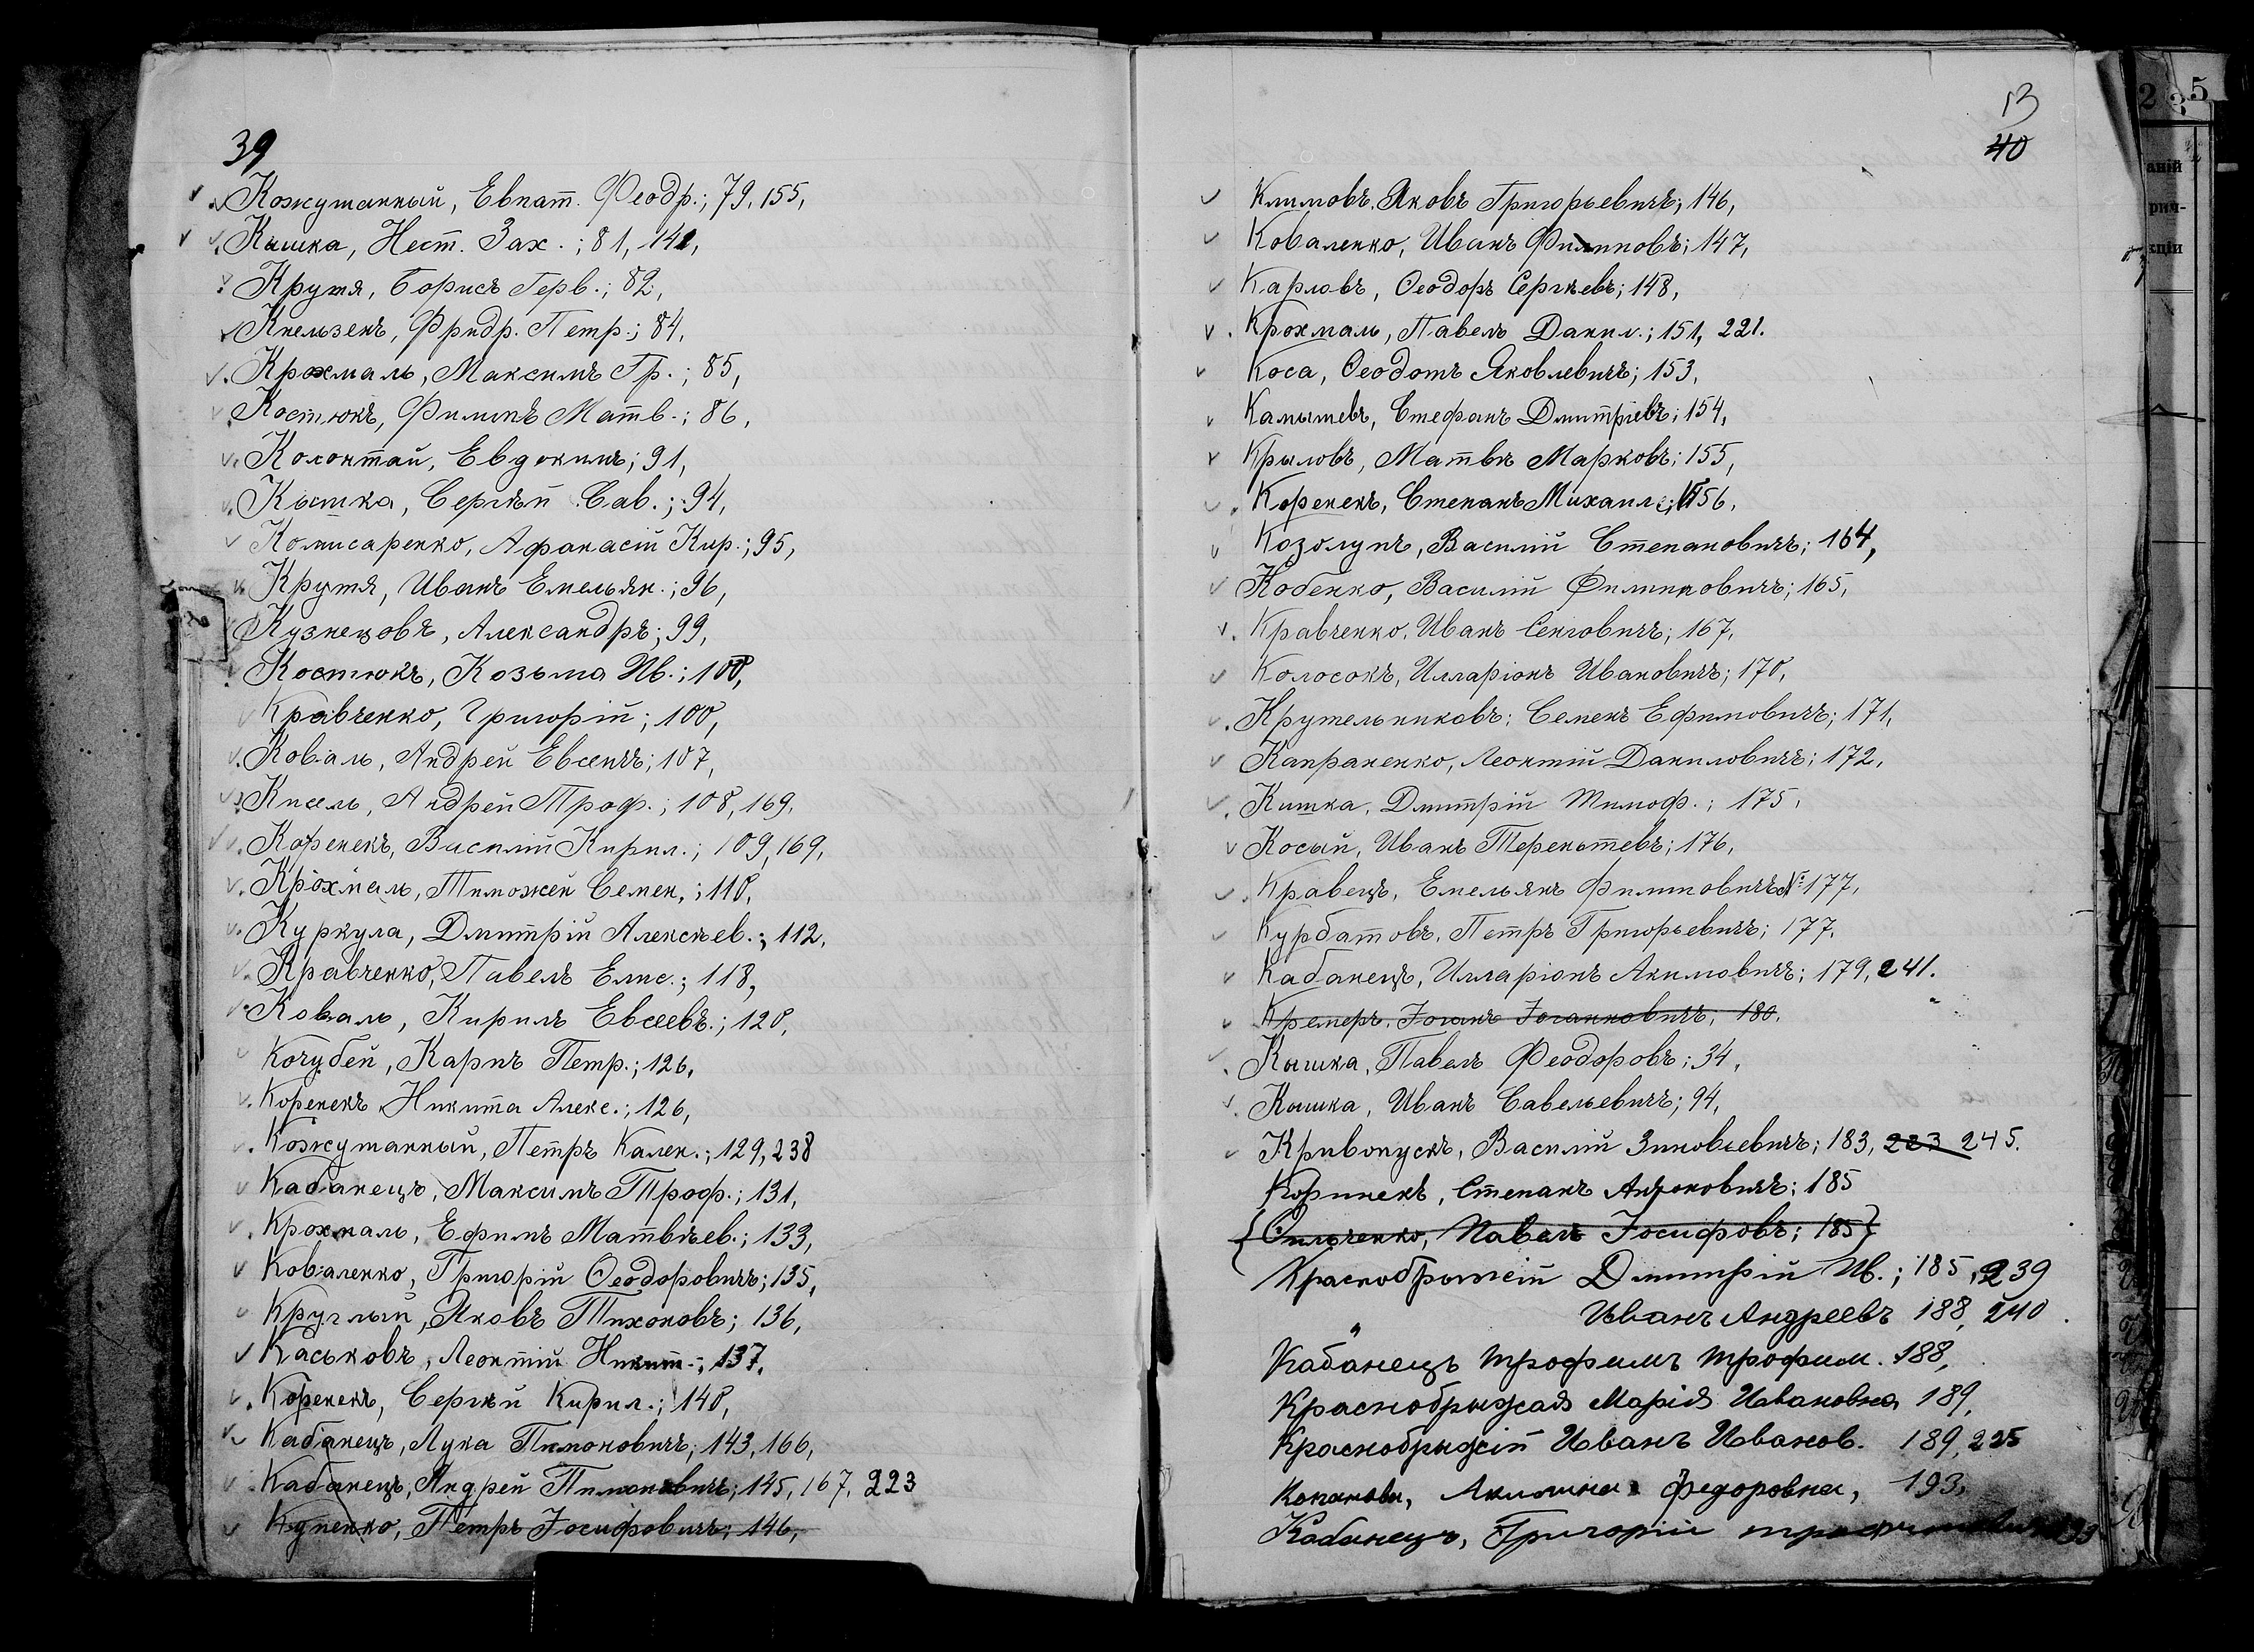 39
Кожушанный, Евпат. Феодр.; 79, 155,
Кышка, Нест. Зах.; 81, 142,
Крутя, Борисъ Герв.; 82,
Кнельзенъ, Фридр. Петр.; 84,
Крохмаль, Максимъ Гр.; 85,
Костюкъ, Филипъ Матв.; 86,
Колонтай, Евдокимъ; 91,
Кышка, Сергѣй Сав.; 94,
Комисаренко, Афанасій Кир.; 95,
Крутя, Иванъ Емельян.; 96,
Кузнецовъ, Александръ; 99,
Костюкъ, Козьма Ив.; 100,
Кравченко, Григорій; 100,
Коваль, Андрей Евсеичъ; 107,
Кисель, Андрей Троф.; 108, 169.
Коренекъ, Василій Кирил.; 109, 169,
Крохмаль, Тимофей Семен.; 110,
Куркула, Дмитрій Алексѣев.; 112,
Кравченко, Павелъ Елис.; 118,
Коваль, Кирилъ Евсеевъ.; 120,
Кочубей, Карпъ Петр.; 126,
Коренекъ Никита Алекс.; 126,
Кожушанный, Петръ Кален.; 129, 238
Кабанецъ, Максимъ Троф.; 131,
Крохмаль, Ефимъ Матвѣев.; 133,
Коваленко, Григорій Ѳеодоровичъ; 135,
Круглый, Яковъ Тихоновъ; 136,
Каськовъ, Леонтій Никит.; 137,
Коренекъ, Сергѣй Кирил.; 140,
Кабанецъ, Лука Пимоновичъ; 143, 166,
Кабанецъ, Андрей Пимоновичъ; 145, 167, 223
Купенко, Петръ Іосифовичъ; 146,
13
40
Климовъ, Яковъ Григорьевичъ; 146,
Коваленко, Иванъ Филиповъ; 147,
Карловъ, Ѳеодоръ Сергѣевъ; 148,
Крохмаль, Павелъ Данил.; 151, 221.
Коса, Ѳеодотъ Яковлевичъ; 153,
Камышевъ, Стефанъ Дмитріевъ; 154,
Крыловъ, Матвѣй Марковъ; 155,
Коренекъ, Степанъ Михаил.; 156,
Козолупъ, Василій Степановичъ; 164,
Кобенко, Василій Филиповичъ; 165,
Кравченко, Иванъ 167,
Колосокъ, Илларіонъ Ивановичъ; 170,
Крутельниковъ; Семенъ Ефимовичъ; 171,
Капраненко, Леонтій Даниловичъ; 172,
Кишка, Дмитрій Тимоф.; 175,
Косый, Иванъ Терентьевъ; 176,
Кравецъ, Емельянъ Филиповичъ № 177,
Курбатовъ, Петръ Григорьевичъ; 177,
Кабанецъ, Илларіонъ Акимовичъ; 179, 241.
Кремеръ, Іоганъ Іоганновичъ, 180,
Кышка, Павелъ Феодоровъ; 34,
Кышка, Иванъ Савельевичъ; 94,
Кривопускъ, Василій Зиновьевичъ; 183, 223 245.
Коринекъ, Степанъ Антоновичъ; 185
{Омельченко, Павелъ Іосифовъ; 185}
Краснобрыжій Дмитрій Ив.; 185, 239
" Иванъ Андреевъ 188, 240
Кабанецъ Трофимъ Трофим. 188,
Краснобрыжая Марія Ивановна 189,
Краснобрыжій Иванъ Иванов. 189, 225
Копанова, Акилина Федоровна, 193,
Кабанецъ, Григорій